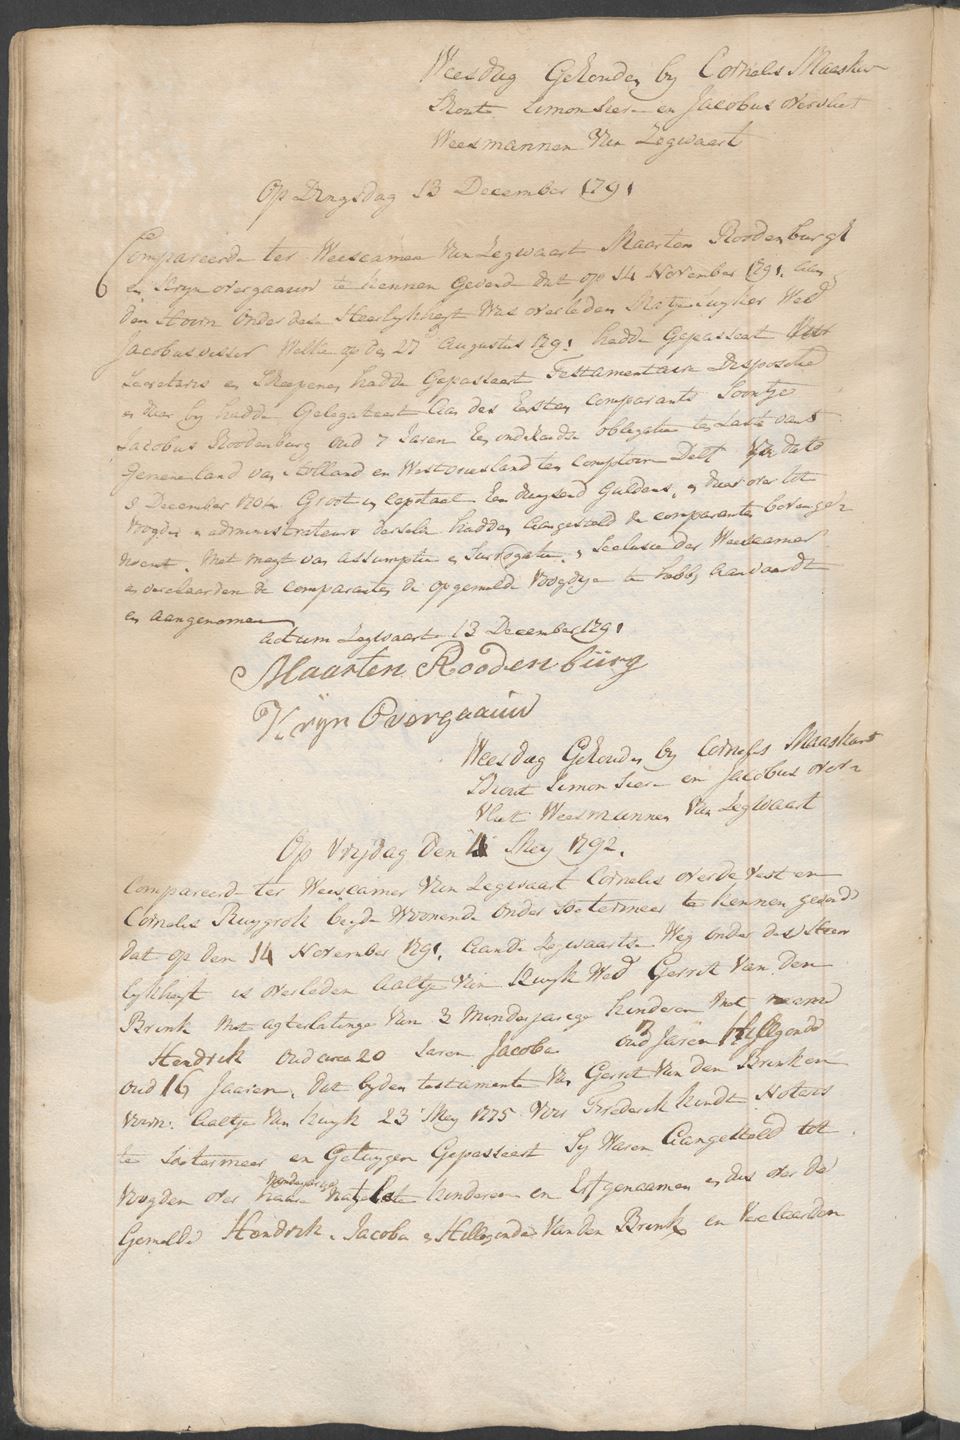 Weesdag Gehouden by Cornelis Maaskant
Schout Simon Siere en Jacobus overvliet
Weesmannen Van Zegwaart
Op Dingsdag 13 December 1791
Compareerde ter Weescamer Van Zegwaart Maarten Roodenburgh
en Kryn overgaauw te kennen Gevende dat op 14 November 1791 aan
den Hoorn onder dese Heerlykheyt Was overleden Suyker Wed
Jacobus visser Welke op den 27 Augustus 1791 hadde Gepasseert voor
Secretaris en Scheepenen hadde Gepasseert Testamentaire Dispositie
en daar by hadde Gelegateert aan des Eersten Comparants Soontje
Jacobus Roodenburg oud 7 Jaren Een obligatie ten Laste vant
Gemeene land van Holland en Westvriesland ten Comptoire Delf de dato
9 December 1704 Groot in Capitaal Een duysend Guldens, en daar over tot
Voogden en administrateurs derselve hadden aangesteld de comparanten bovenge-
noemt, Met magt van assumptie en Surrogatie en Seclusie der Weescamer
en verclaarden de comparanten de opgemelde Voogdye te hebben aanvaardt
en aangenomen
actum Zegwaart 13 December 1791
Maarten Roodenbürg
Krijn Overgaauw
Weesdag Gehouden by Cornelis Maaskant
Schout Simon Siere en Jacobus over-
vliet Weesmannen Van Zegwaart
Op Vrijdag Den 4 Mey 1792.
Compareerde ter Weescamer Van Zegwaart Cornelis overdevest en
Cornelis Ruygrok beyde Woonende onder Soetermeer te kennen gevende
dat op den 14 November 1791, aan de Zegwaartse Weg onder dese Heer
lykheyt is overleden Aaltje Van Kuyk Wed Gerrit Van den
Brink Met agterlatinge Van 3 Minderjarige kinderen Met naame
Hendrik oud circa 20 Jaren Jacoba oud Jaren Hillegonde
oud 16 Jaaren, dat by den testamente Van Gerrit Van den Brink en
voorn: Aaltje Van Kuyk 23 Mey 1775 voor Frederik Kindt Notaris
te Soetermeer en Getuygen Gepasseert Sy Waren aangesteld tot
Voogden over haar Minderjarige natelaten kinderen en Erfgenaamen en dus over de
Gemelde Hendrik, Jacoba en Hillegonde Van den Brink en Verclaarden